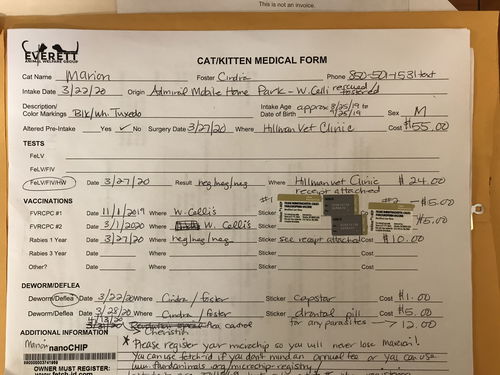 This is not an invoice.
EVERETT
ANIMAL WELFARE GROUP
CAT/KITTEN MEDICAL FORM
Cat Name Marion Foster Cindra Phone 850-501-1531 text
Intake Date 3/22/20 Origin Admiral Mobile Home Park - W. Celli rescued/fostered
Description/ Color Markings Blk/wh. Tuxedo Intake Age approx 8/25/19 to 9/25/19 Date of Birth Sex M
Altered Pre-Intake Yes ✓ No Surgery Date 3/27/20 Where Hillman Vet Clinic Cost $55.00
TESTS
FeLV
FeLV/FIV
FeLV/FIV/HW Date 3/27/20 Result neg/neg/neg Where Hillman Vet Clinic $24.00
receipt attached
VACCINATIONS #1 #2 $5.00
FVRCPC #1 Date 11/1/2019 Where W. Celli's Sticker
FVRCPC #2 Date 3/1/2020 Where W. Celli's Sticker $5.00
Rabies 1 Year Date 3/27/20 Where neg/neg/neg Sticker see receipt attached Cost $10.00
Rabies 3 Year Date Where Sticker Cost
Other? Date Where Sticker Cost
DEWORM/DEFLEA
Deworm/Deflea Date 3/22/20 Where Cindra / foster Sticker capstar Cost $1.00
Deworm/Deflea Date 3/28/20 Where Cindra / foster Sticker drontal pill Cost $5.00
4/13/20 flea control for any parasites → 12.00
ADDITIONAL INFORMATION → Cheristin
Marion nanoCHIP * Please register your microchip so you will never lose Marion!
You can use fetch-id if you don't mind an annual fee or you can use
OWNER MUST REGISTER: www.foundanimals.org/microchip-registry/
www.fetch-id.com